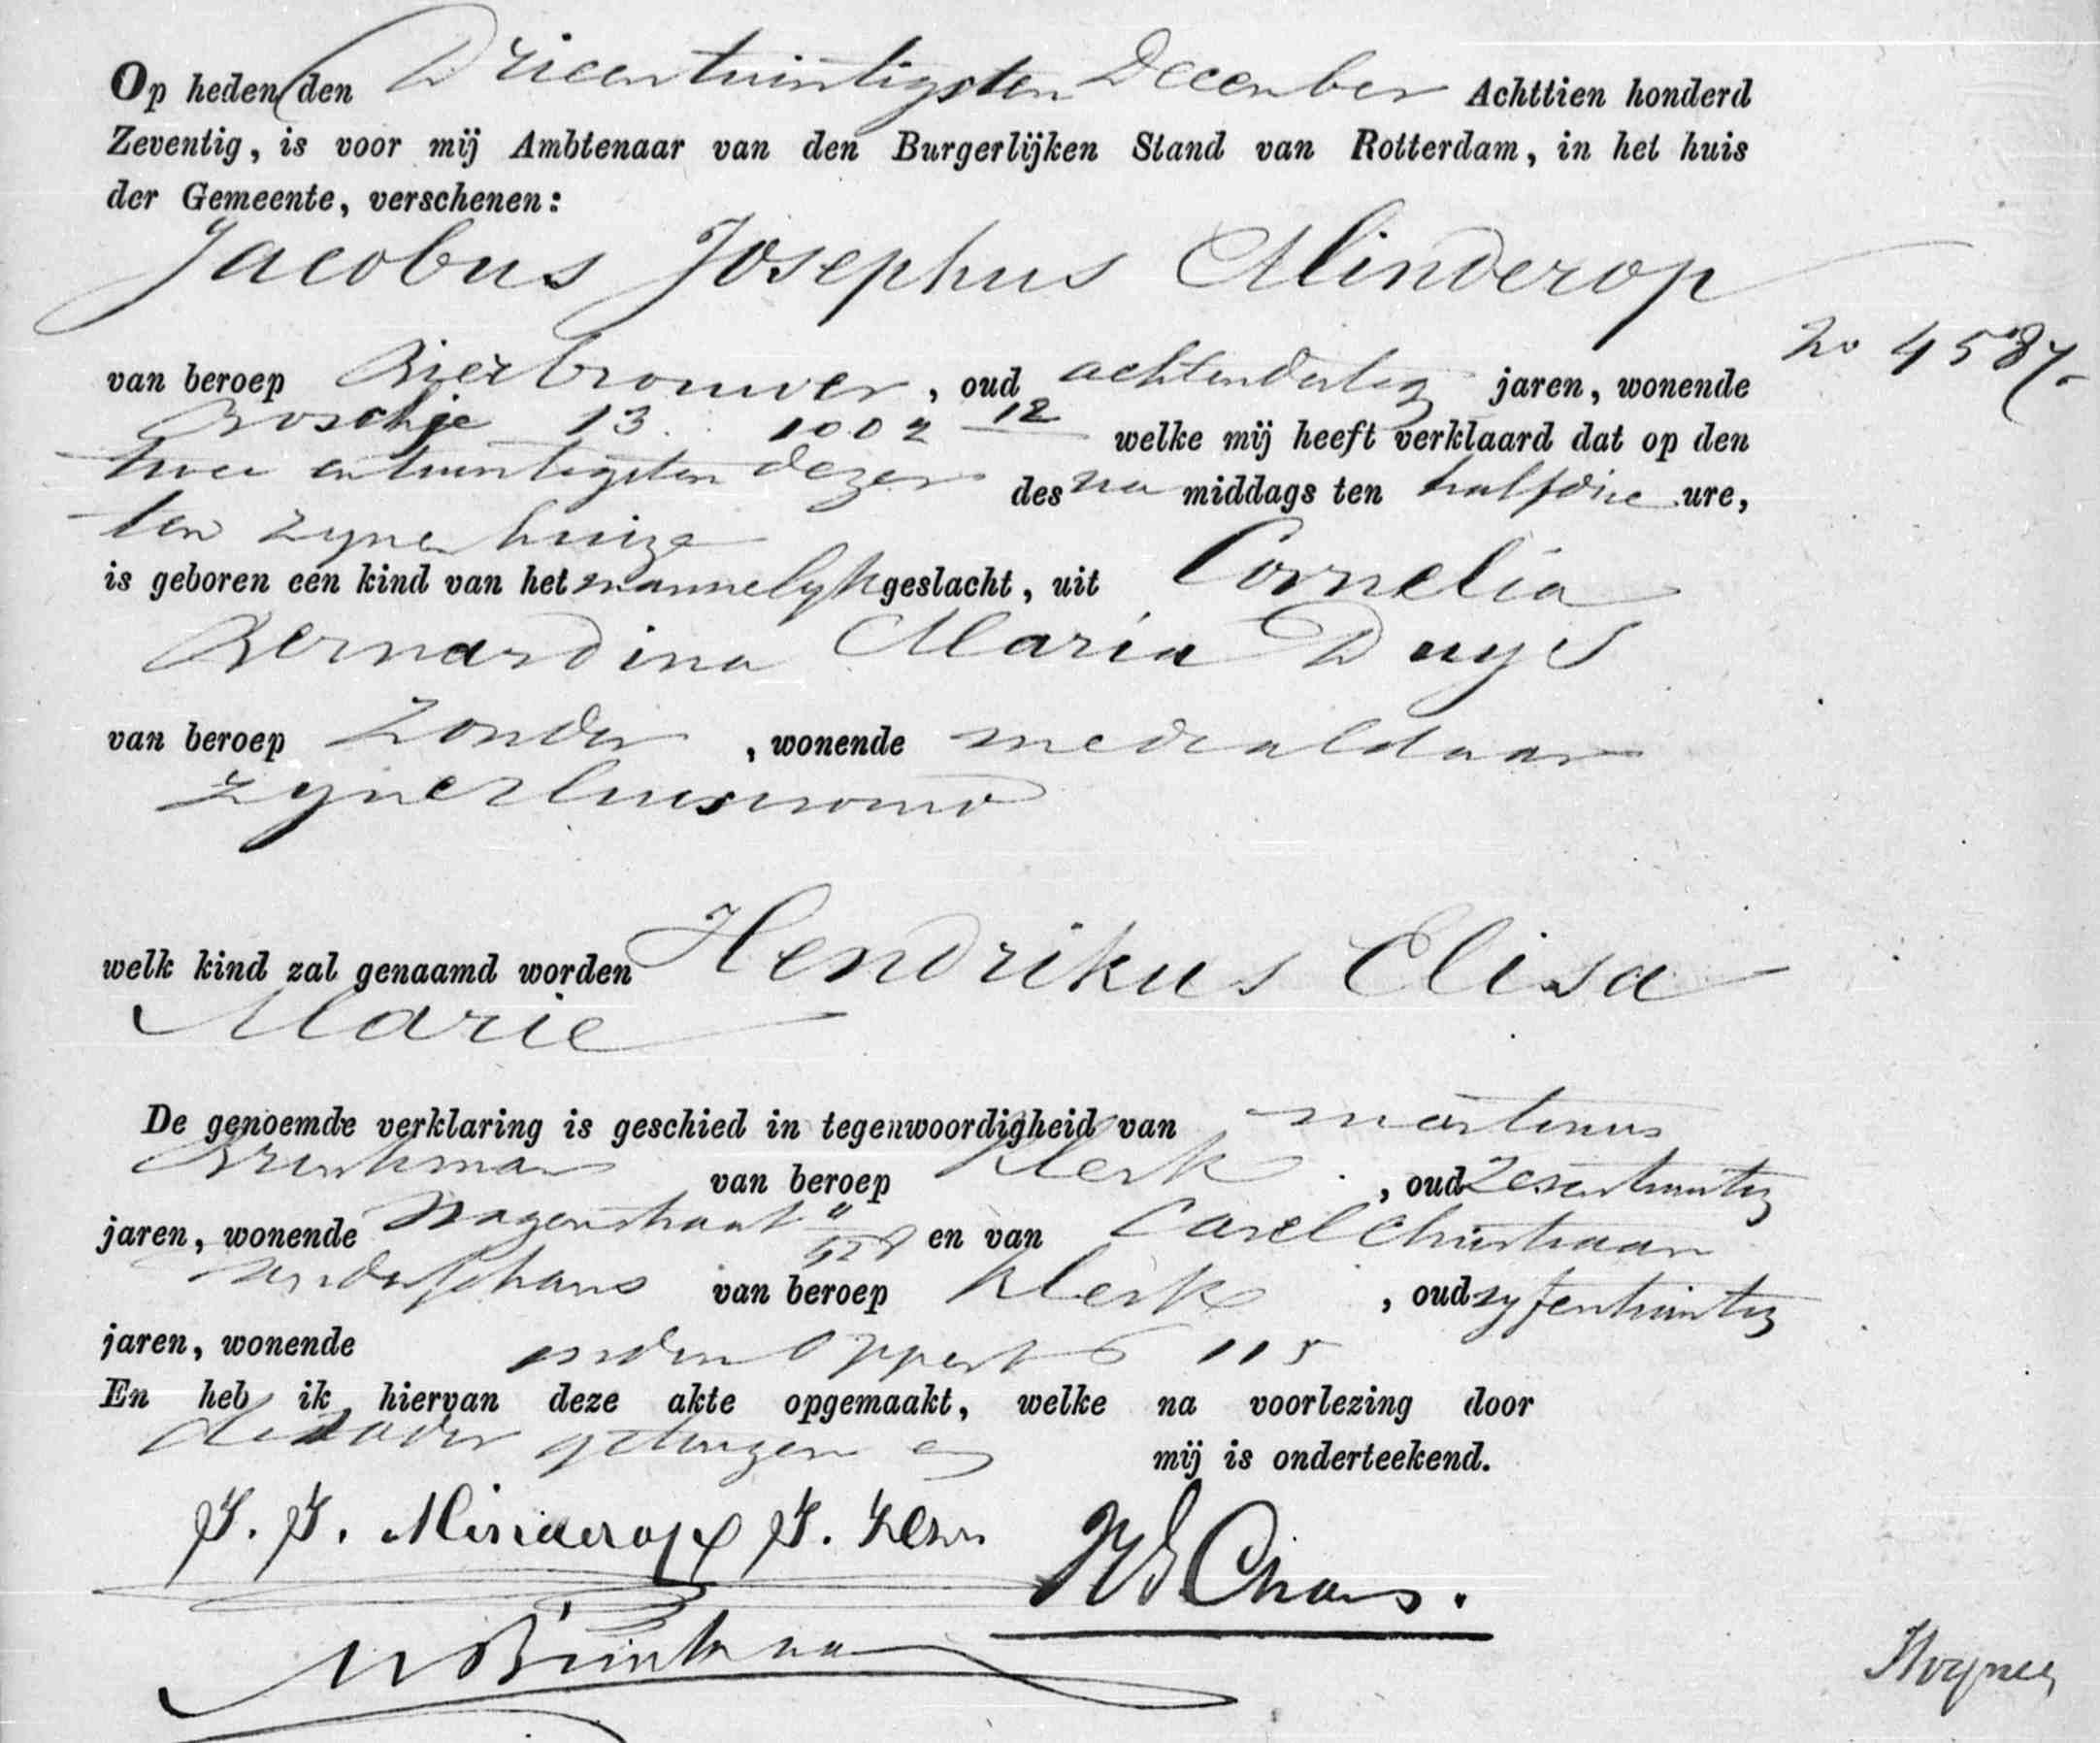 Op heden den Drieentwintigsten December Achttien honderd
Zeventig, is voor mij Ambtenaar van den Burgerlijken Stand van Rotterdam, in het huis
der Gemeente, verschenen:
Jacobus Josephus Minderop
no 4587
van beroep Bierbrouwer, oud achtendertig jaren, wonende
Boschje 13. 1002 12 welke mij heeft verklaard dat op den
twee entwintigsten dezer des na middags ten halfdrie ure,
ten zynen huize
is geboren een kind van het mannelyk geslacht, uit Cornelia
Bernardina Maria Duys
van beroep Zonder, wonende mede aldaar
zyne huisvrouw
welk kind zal genaamd worden Hendrikus Elisa
Marie
De genoemde verklaring is geschied in tegenwoordigheid van Martinus
Brinkman van beroep Klerk, oud Zesentwintig
jaren, wonende Wagenstraat en van Carel Christiaan
van der Chans... van beroep Klerk, oud vyfentwintig
jaren, wonende Oppert 115
En heb ik hiervan deze akte opgemaakt, welke na voorlezing door
de vader getuigen en mij is onderteekend.
J. J. Minderop J. Zen
Chans.
M Brinkman